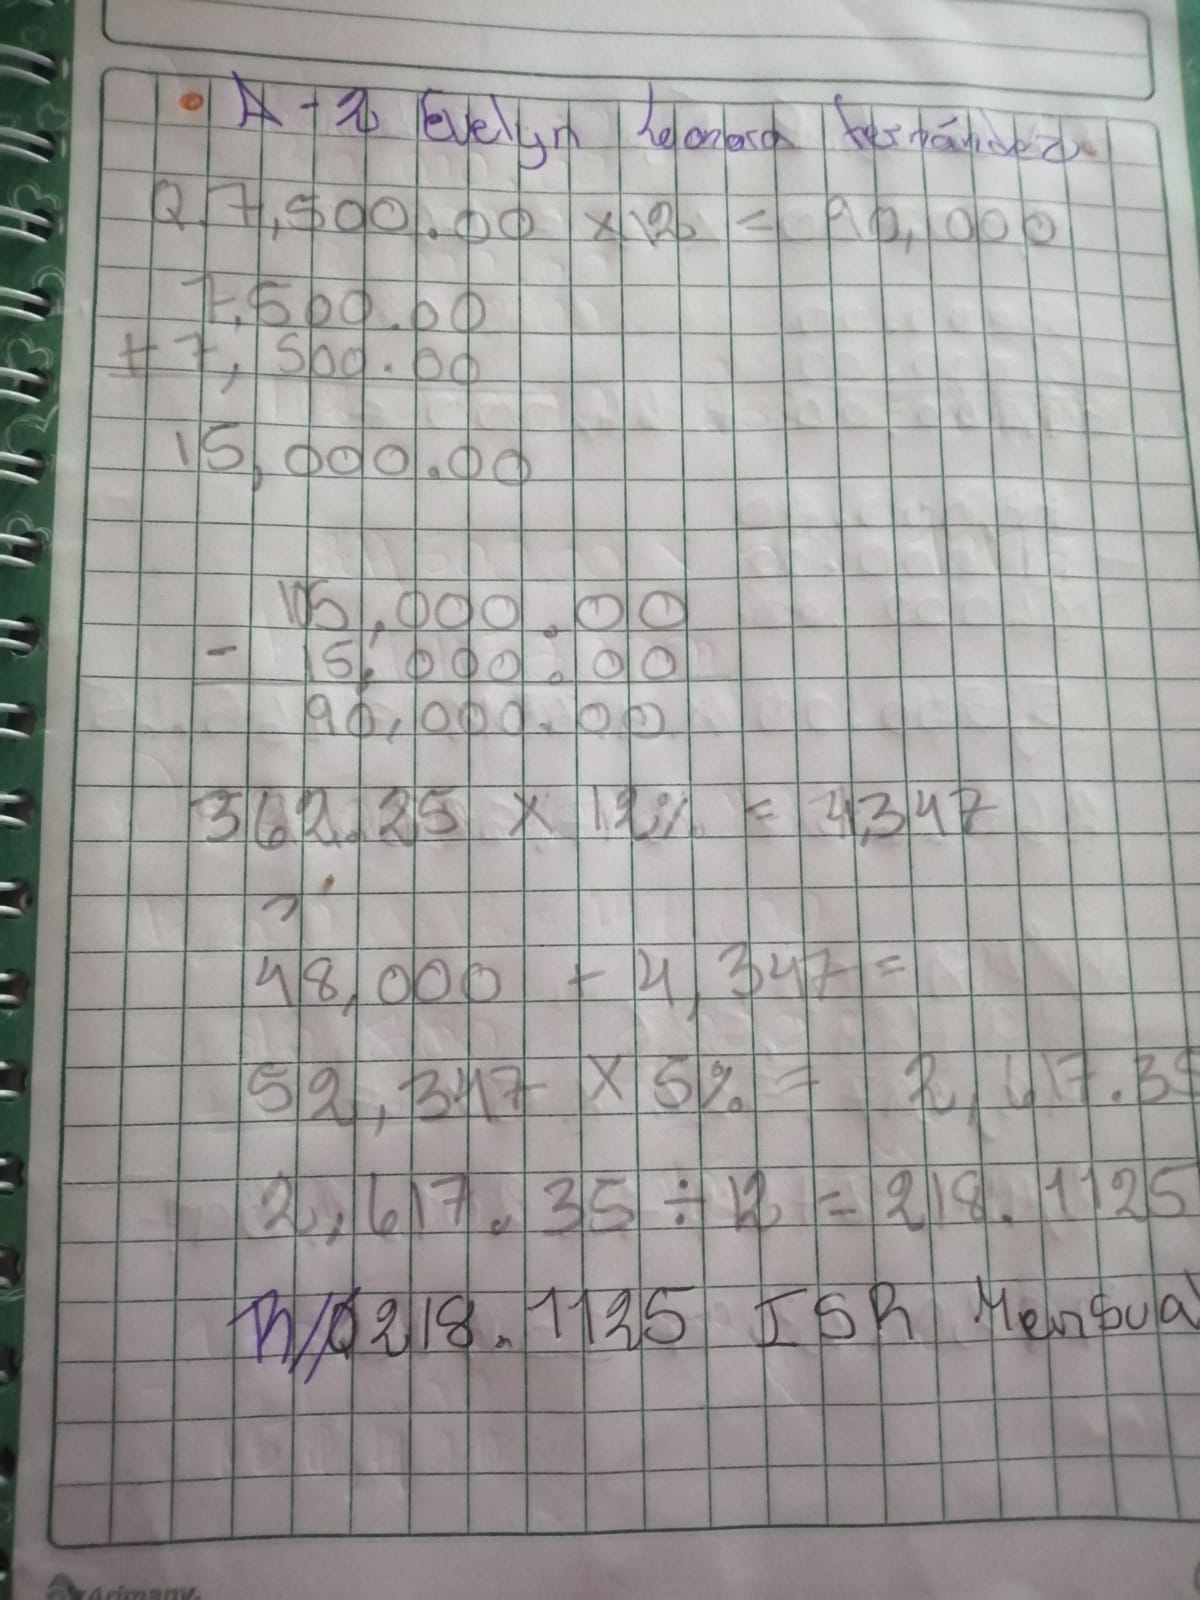 A - 2 Evelyn Leonora Fernández
Q 7,500.00 x 12 = 90,000
7,500.00
+ 7,500.00
15,000.00
105,000.00
- 15,000.00
90,000.00
362.25 x 12% = 4,347
48,000 + 4,347 =
52,347 x 5% = 2,617.35
2,617.35 ÷ 12 = 218.1125
R/Q218.1125 ISR Mensual
Arimany